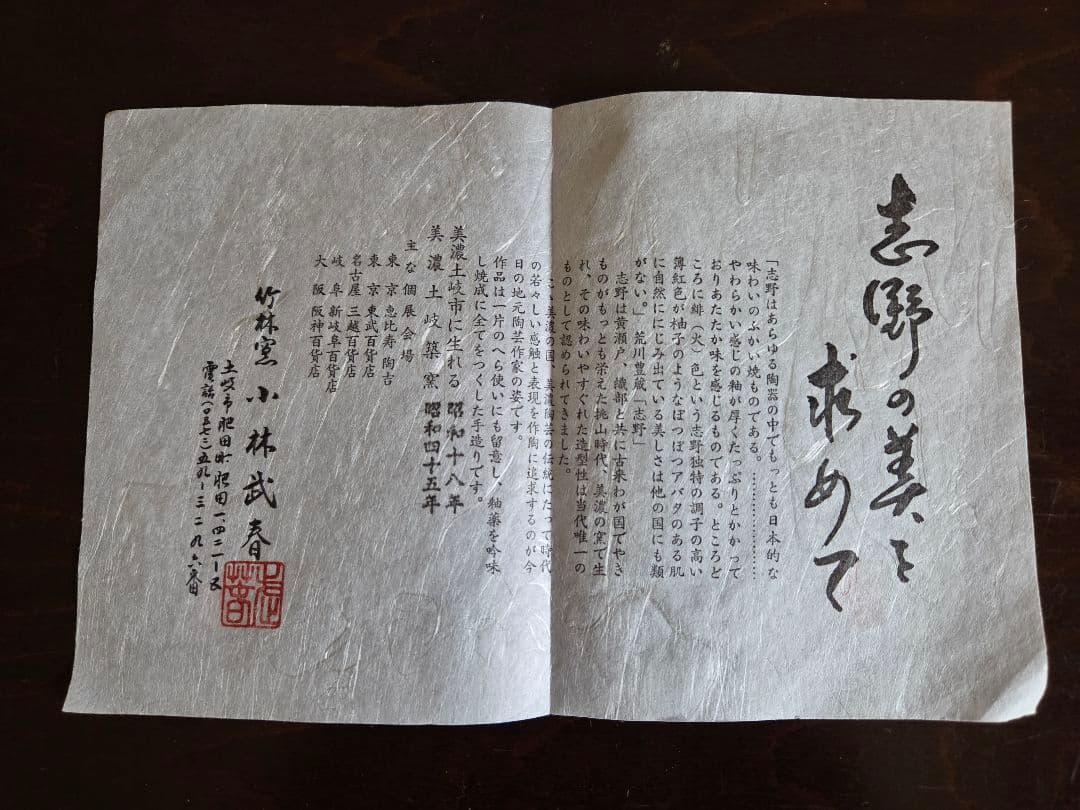 志野の美を
求めて
「志野はあらゆる陶器の中でもっとも日本的な
味わいのふかい焼ものである。…………………
やわらかい感じの釉が厚くたっぷりとかかって
おりあたたか味を感じるものである。ところど
ころに緋（火）色という志野独特の調子の高い
薄紅色が柚子のようなぽつぽつアバタのある肌
に自然ににじみ出ている美しさは他の国にも類
がない。」荒川豊蔵「志野」
志野は黄瀬戸、織部と共に古来わが国でやき
ものがもっとも栄えた桃山時代、美濃の窯で生
れ、その味わいやすぐれた造型性は当代唯一の
ものとして認められてきました。
美濃の国、美濃陶芸の伝統にたって時代
の若々しい感触と表現を作陶に追求するのが今
日の地元陶芸作家の姿です。
作品は一片のへら使いにも留意し、釉薬を吟味
し焼成に全てをつくした手造りです。
美濃土岐市に生れる 昭和十八年
美濃土岐築窯 昭和四十五年
主な個展会場
東京恵比寿陶吉
東京東武百貨店
名古屋三越百貨店
岐阜新岐阜百貨店
大阪阪神百貨店
竹林窯 小林武春
土岐市肥田町肥田一四二一ー五
電話（〇五七二）五九ー三二九六番